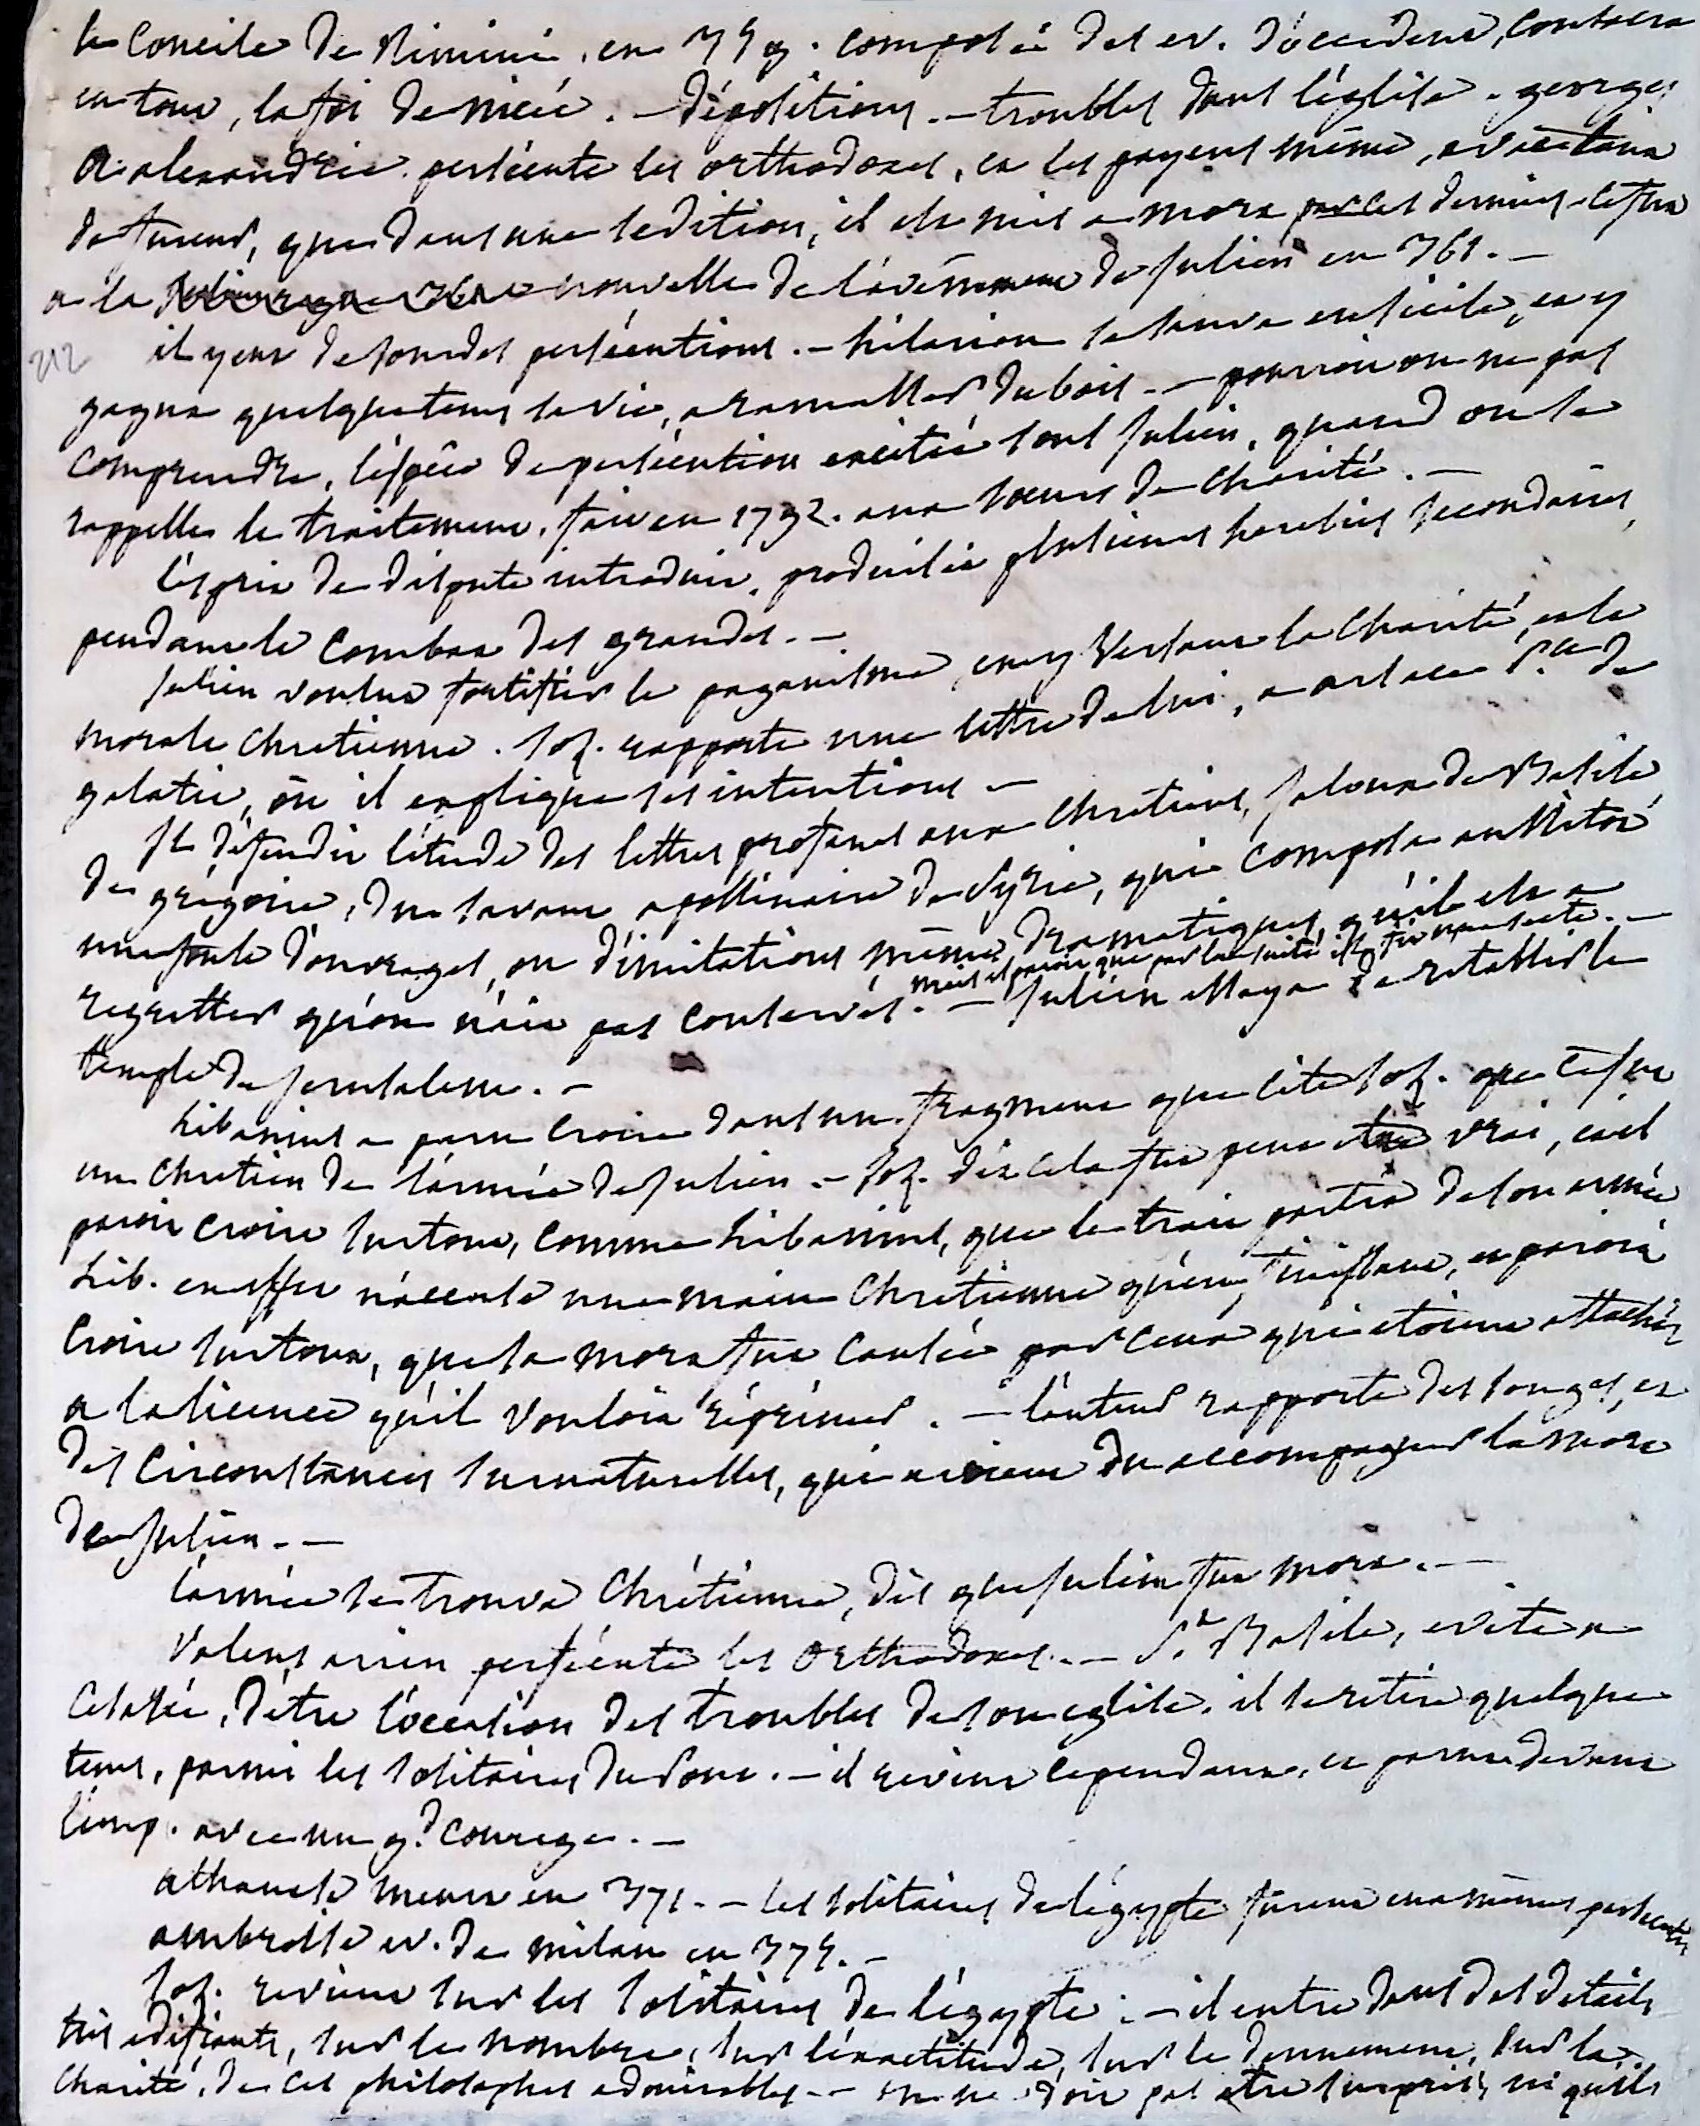 le Concile de Rimini, en 359. composé des ev. d'occident, consacra
en tout, la foi de nicée. — dépositions. — troubles dans l'église. georges
a alexandrie persécute les orthodoxes, et les payens même, avec tant
de fureur, que dans une sedition, il est mis a mort par ces derniers. c'etoit
a la nouvelle de l'avénement de Julien en 361. —
212
il y eut de sourdes persécutions. — hilarion se sauva en sicile, et y
gagna quelque tems sa vie, a ramasser du bois. — pourroit on ne pas
comprendre, l'éspèce de persécution excitée sous Julien, quand on se
rappelle le traitement, fait en 1792. aux sœurs de charité. —
l'esprit de dispute introduit, produisit plusieurs heresies secondaires,
pendant le combat des grandes. —
Julien voulut fortifier le paganisme, en y versant la charité, et la
morale chretienne. Soz. rapporte une lettre de lui, a arsace P.re de
galatie, où il explique ses intentions —
Il défendit l'étude des lettres profanes aux chrétiens, jaloux de Basile,
de grégoire, du savant apollinaire de Syrie, qui composa aussitôt
une foule d'ouvrages, ou d'imitations même dramatiques, qu'il est a
mais il paroit que par la suite il fit une secte. —
regretter qu'on n'ait pas conservés. — Julien essaya de retablir le
temple de Jerusalem. —
Libanius a paru croire dans un fragment que cite Soz. que ce fut
un chretien de l'armée de Julien. — Soz. dit cela fut peut etre vrai, et il
paroit croire surtout, comme Libanius, que le trait partit de son armée
Lib. en effet n'accuse une main chretienne qu'en finissant, et paroit
croire surtout, que sa mort fut causée par ceux qui etoient attachés
a la licence qu'il vouloit réprimer. — l'auteur rapporte des songes, et
des circonstances surnaturelles, qui avoient du accompagner la mort
de Julien. —
l'armée se trouva chrétienne, dès que Julien fut mort. —
Valens arien persécute les orthodoxes. — S.t Basile, evite a
Césarée, d'être l'occasion des troubles de son eglise. il se retire quelque
tems, parmi les solitaires du Pont. — il revient cependant, et parut devant
l'emp. avec un g.d courage. —
athanase meurt en 371. — les solitaires de l'égypte furent eux mêmes persécutés
ambroise ev. de milan en 374. —
Soz. revient sur les solitaires de l'égypte: — il entre dans des details
très edifiants, sur le nombre, sur l'exactitude, sur le denuement, sur la
charité, de ces philosophes admirables. — on ne doit pas etre surpris, ni qu'ils